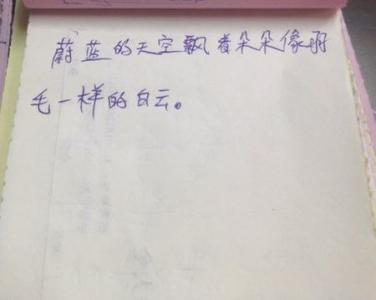 蔚蓝的天空飘着朵朵像羽
毛一样的白云。